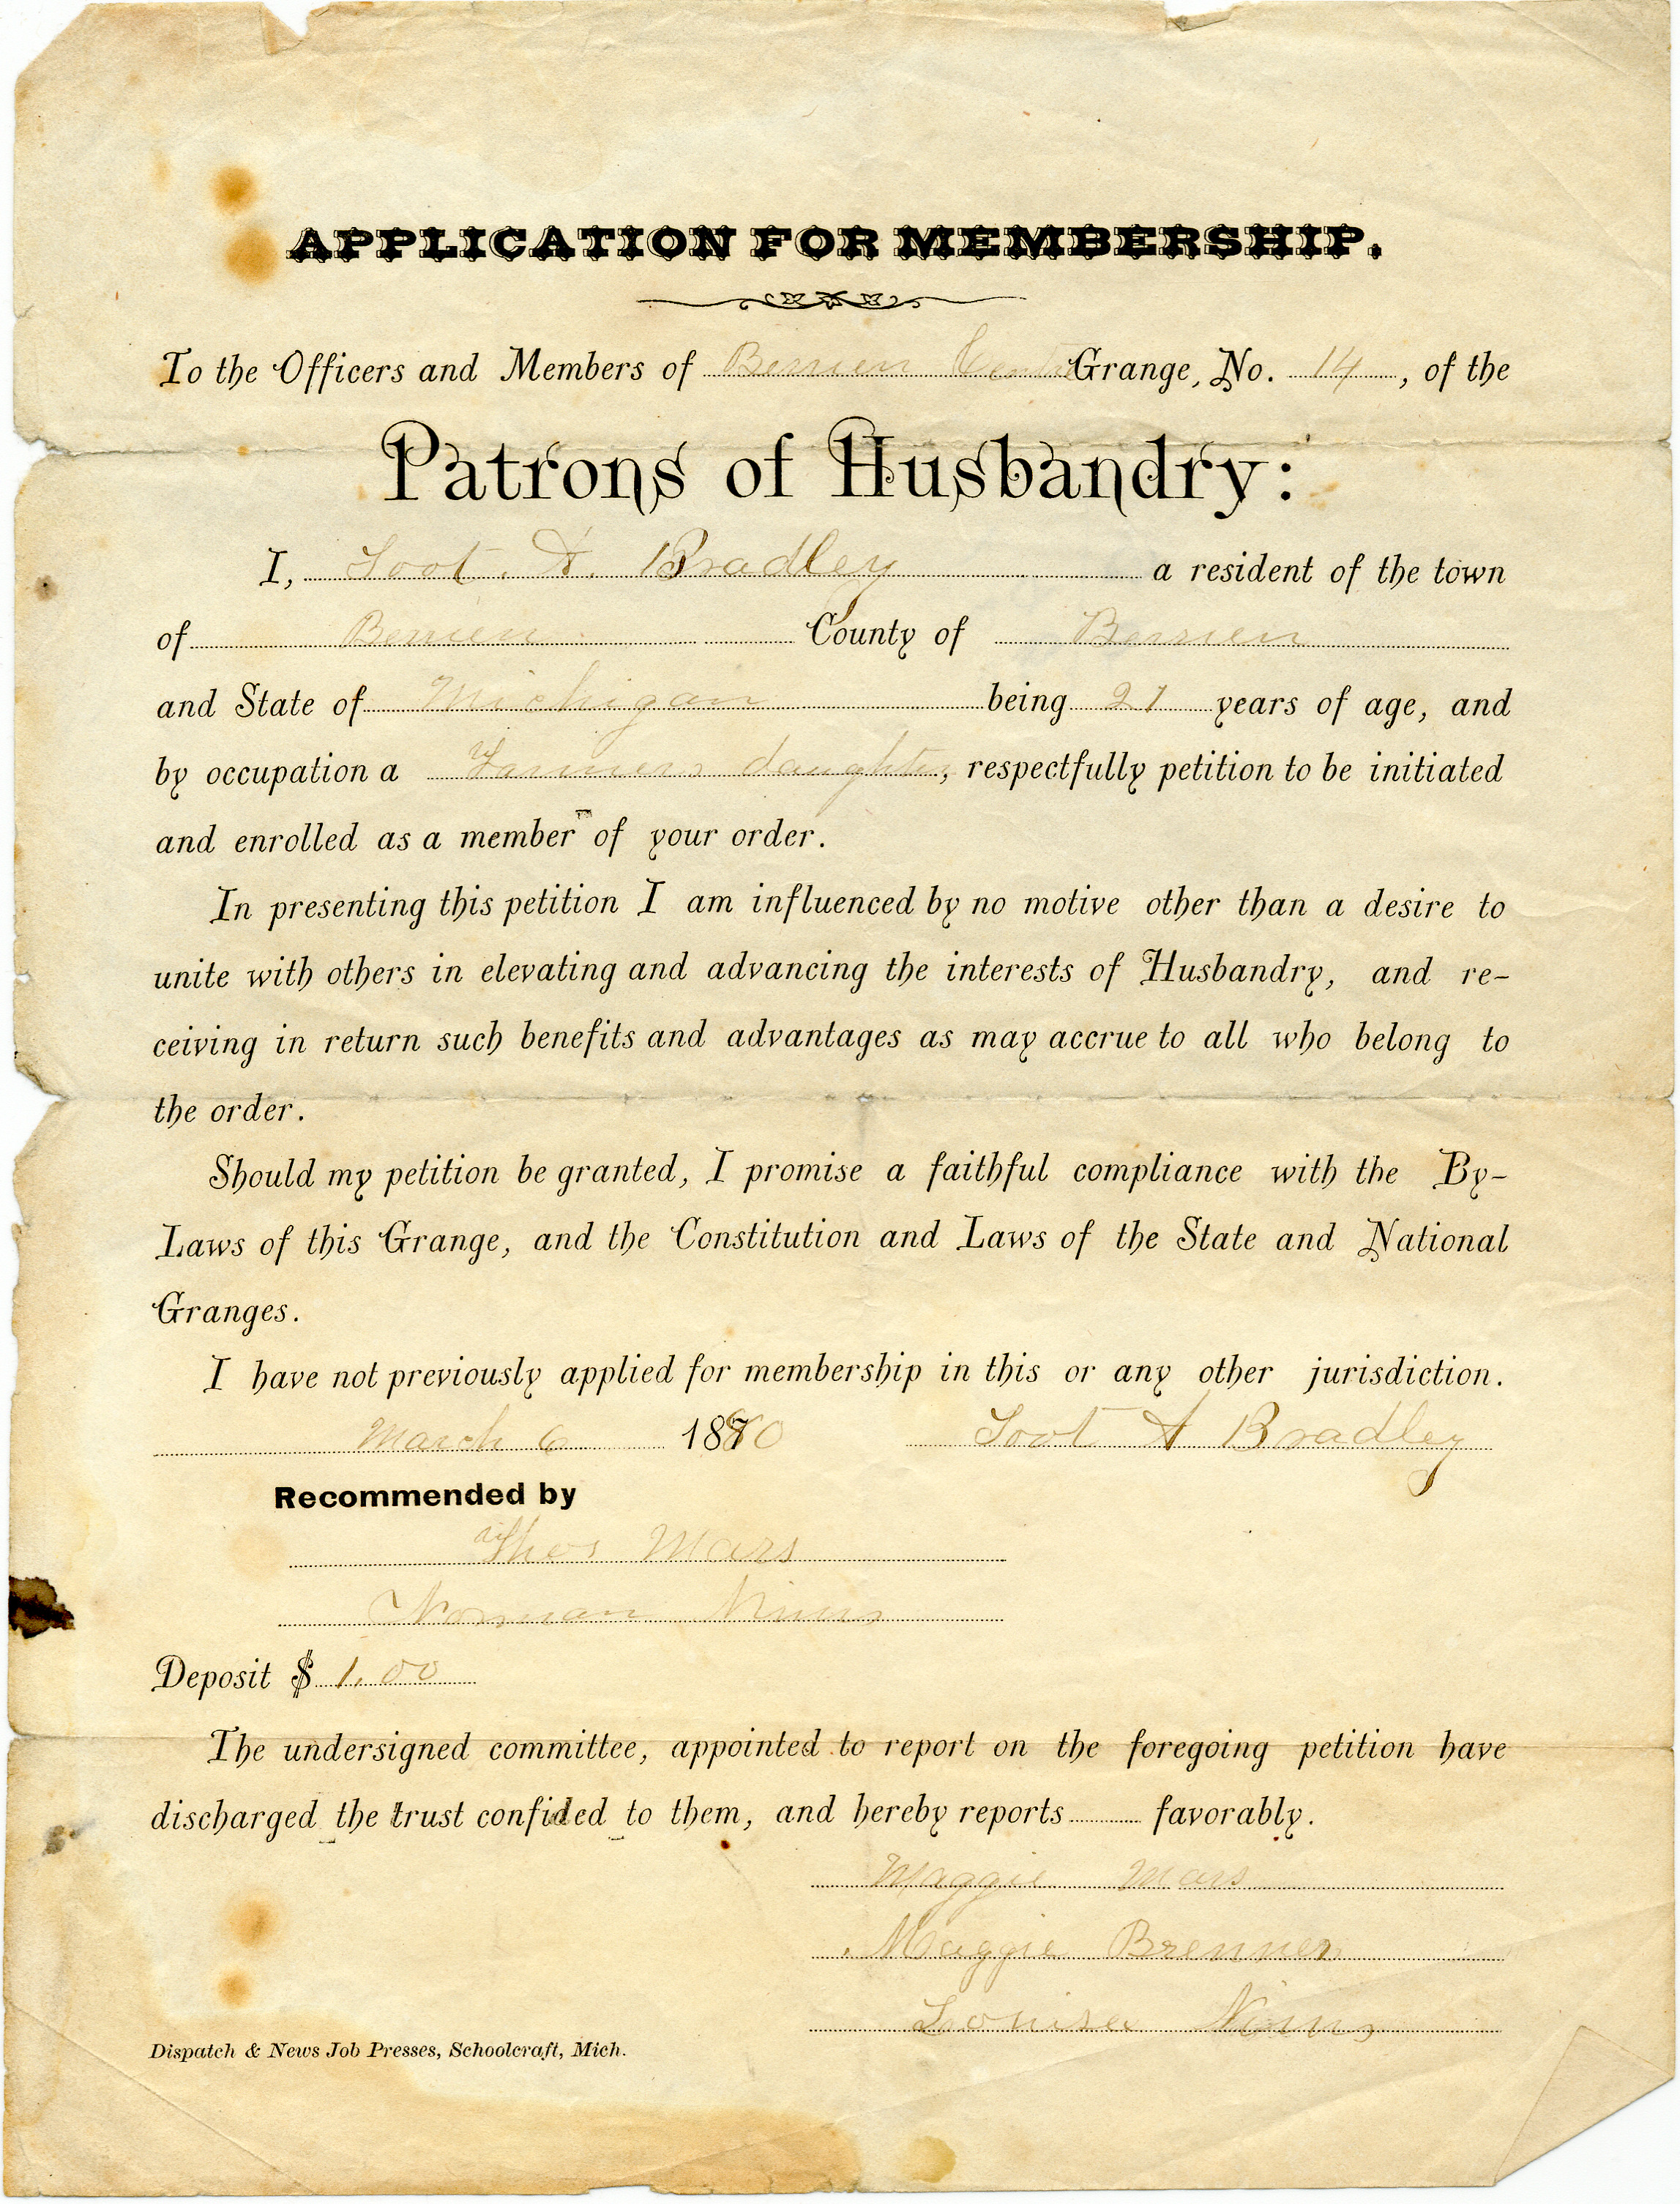 APPLICATION FOR MEMBERSHIP.
To the Officers and Members of Berrien Centre Grange, No. 14, of the
Patrons of Husbandry:
I, Soot. A. Bradley a resident of the town
of Berrien County of Berrien
and State of Michigan being 21 years of age, and
by occupation a Farmers daughter, respectfully petition to be initiated
and enrolled as a member of your order.
In presenting this petition I am influenced by no motive other than a desire to
unite with others in elevating and advancing the interests of Husbandry, and re-
ceiving in return such benefits and advantages as may accrue to all who belong to
the order.
Should my petition be granted, I promise a faithful compliance with the By-
Laws of this Grange, and the Constitution and Laws of the State and National
Granges.
I have not previously applied for membership in this or any other jurisdiction.
March 6 1880 Soot A Bradley
Recommended by
Thos Mars
Norman Nims
Deposit $ 1.00
The undersigned committee, appointed to report on the foregoing petition have
discharged the trust confided to them, and hereby reports favorably.
Maggie Mars
Maggie Brenner
Louisa Nims
Dispatch & News Job Presses, Schoolcraft, Mich.